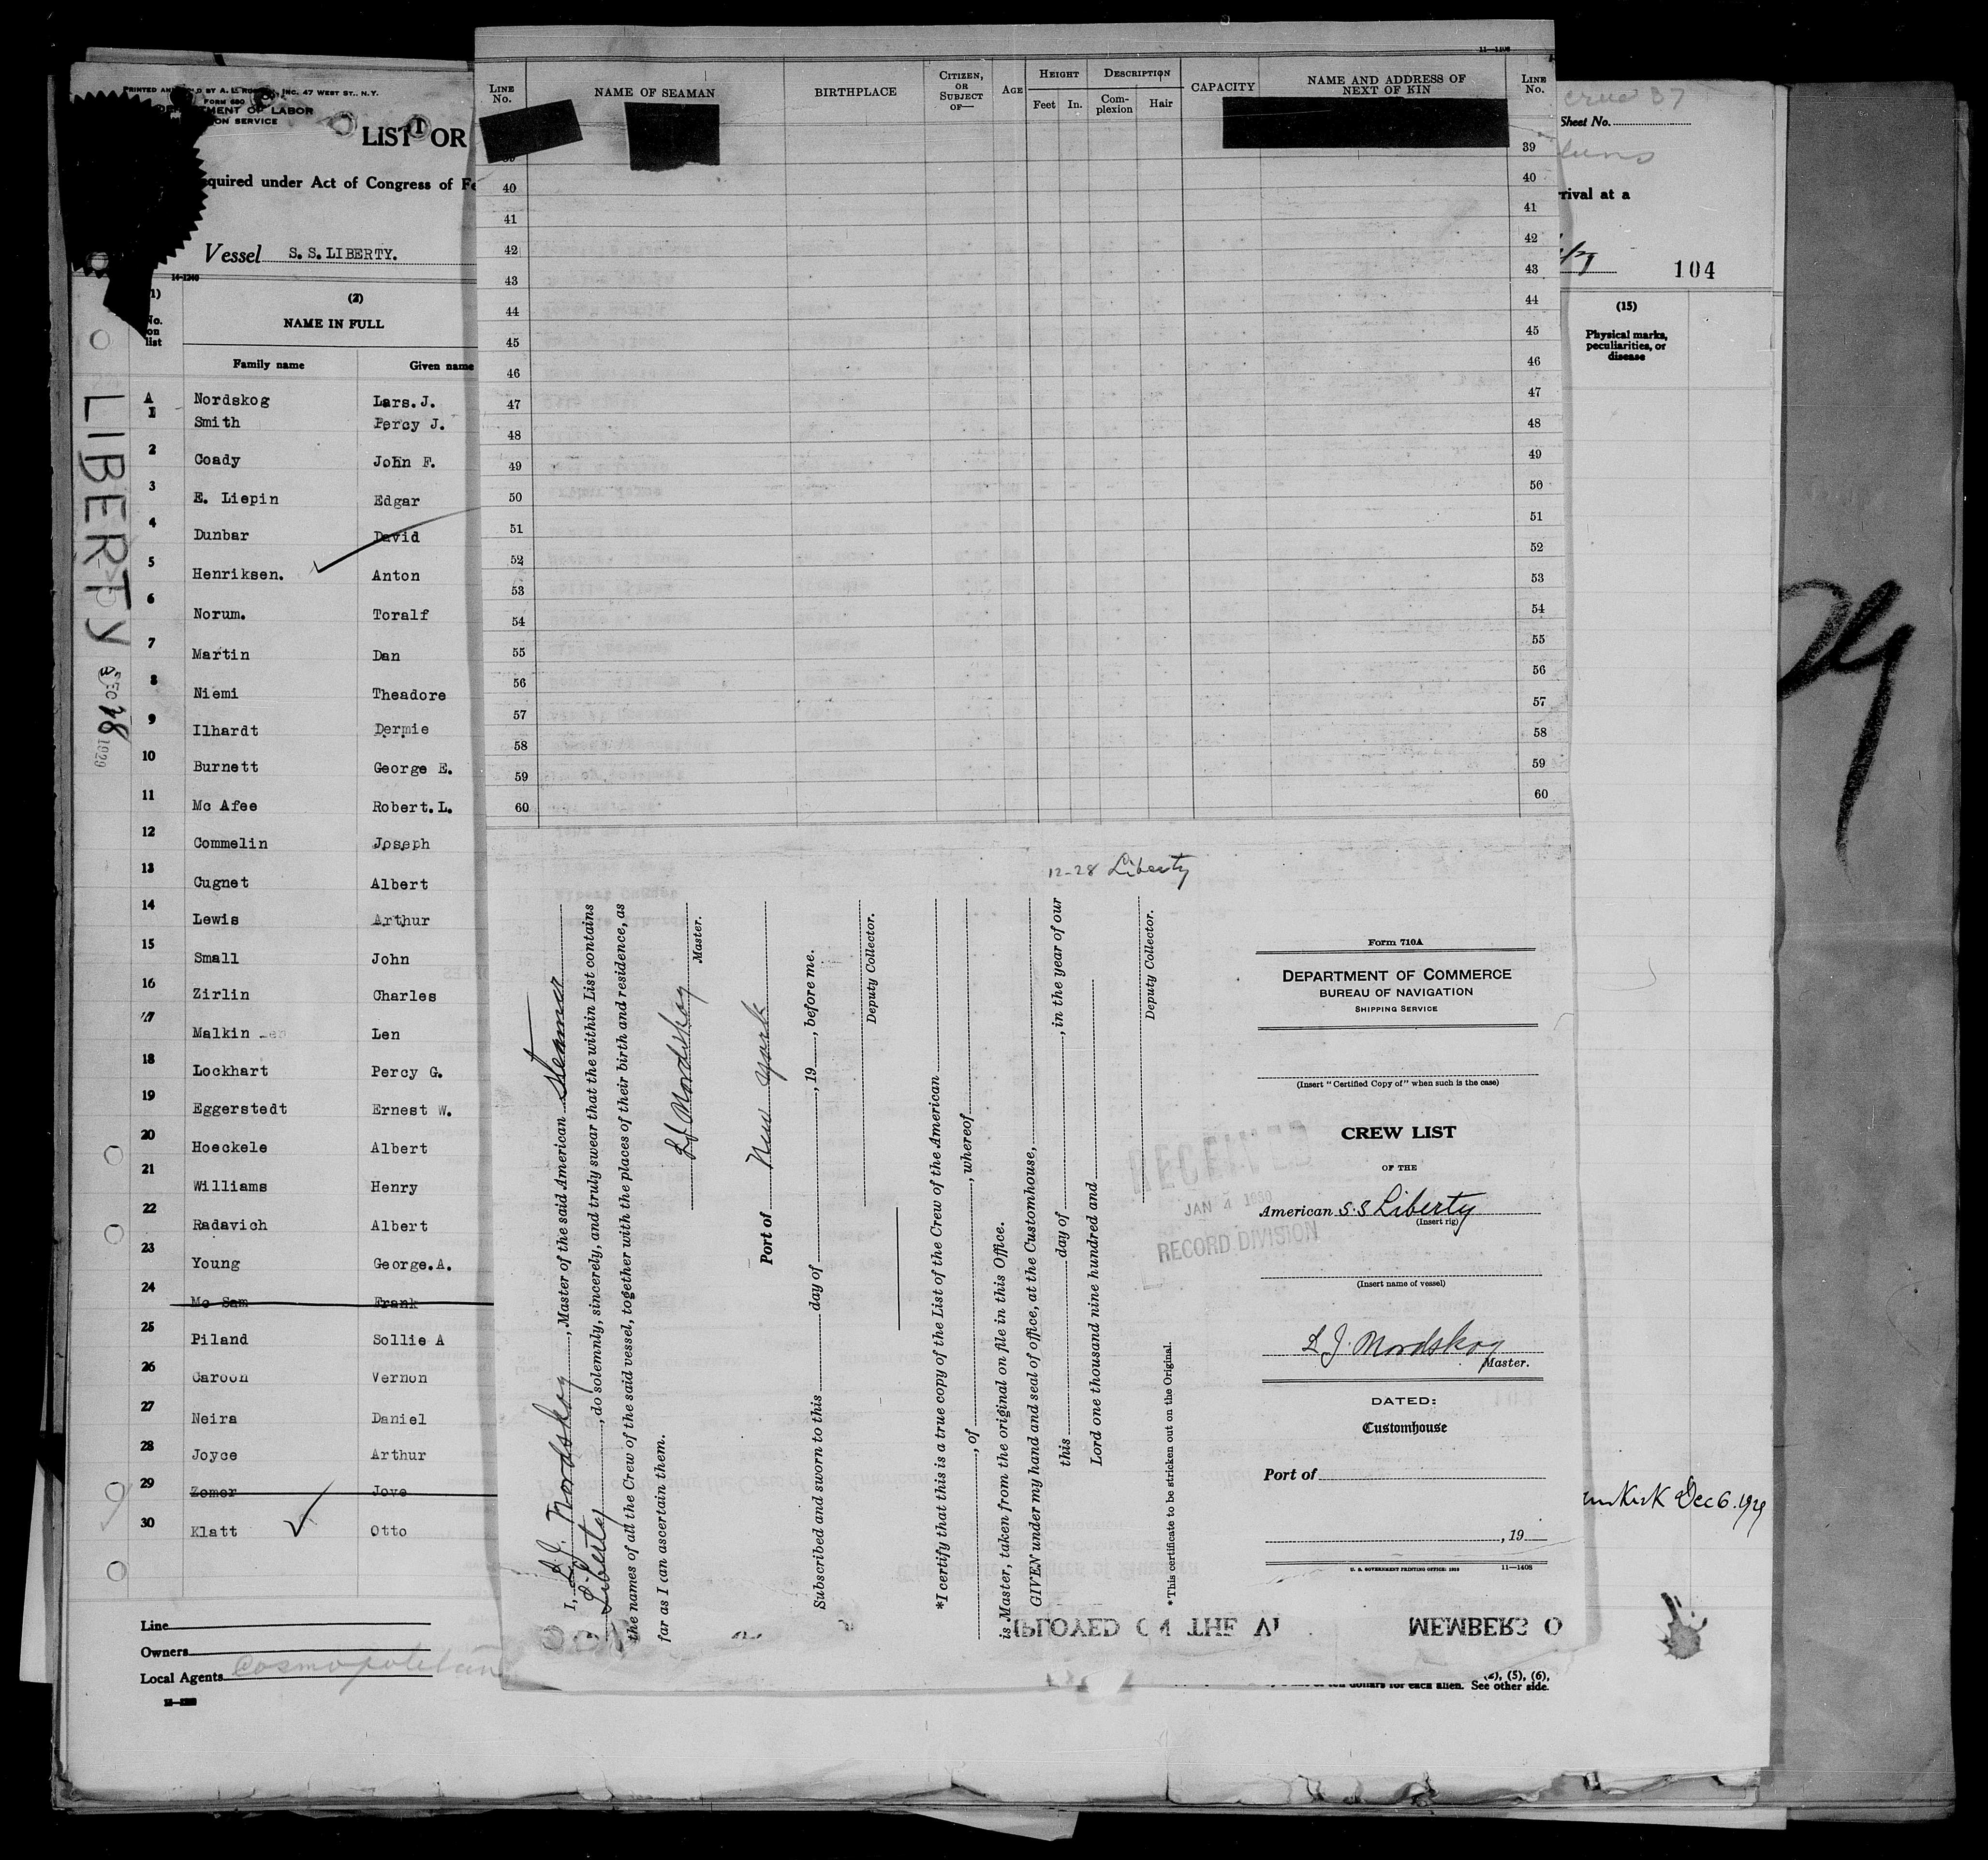 PRINTED AND
D BY A. L.
INC. 47 WEST ST., N.Y.
FORM 680
MENT OF LABOR
ON SERVICE
LIST OR
equired under Act of Congress of Fe
Vessel S.S.LIBERTY.
14-1240
(1) (2)
No. on list
NAME IN FULL
Family name Given name
A Nordskog Lars.J.
1 Smith Percy J.
2 Coady John F.
3 E. Liepin Edgar
4 Dunbar David
5 Henriksen. Anton
6 Norum. Toralf
7 Martin Dan
8 Niemi Theadore
9 Ilhardt Dermie
10 Burnett George E.
11 Mc Afee Robert.L.
12 Commelin Joseph
13 Cugnet Albert
14 Lewis Arthur
15 Small John
16 Zirlin Charles
17 Malkin Len
18 Lockhart Percy G.
19 Eggerstedt Ernest W.
20 Hoeckele Albert
21 Williams Henry
22 Radavich Albert
23 Young George.A.
24 Mc Sam Frank
25 Piland Sollie A
26 Caroon Vernon
27 Neira Daniel
28 Joyce Arthur
29 Zomer Jove
30 Klatt Otto
Line
Owners
Local Agents Cosmopolitan
LIBERTY
DEC 28 1929
11—1408
LINE No.
NAME OF SEAMAN
BIRTHPLACE
CITIZEN, OR SUBJECT OF—
AGE
HEIGHT
Feet In.
DESCRIPTION
Complexion Hair
CAPACITY
NAME AND ADDRESS OF NEXT OF KIN
LINE No.
39 39
40 40
41 41
42 42
43 43
44 44
45 45
46 46
47 47
48 48
49 49
50 50
51 51
52 52
53 53
54 54
55 55
56 56
57 57
58 58
59 59
60 60
12-28 Liberty
I, L.J. Nordskog, Master of the said American Steamer
Liberty, do solemnly, sincerely, and truly swear that the within List contains
the names of all the Crew of the said vessel, together with the places of their birth and residence, as
far as I can ascertain them.
L J Nordskog
Master.
Port of New York
Subscribed and sworn to this day of , 19 , before me.
Deputy Collector.
*I certify that this is a true copy of the List of the Crew of the American
, of , whereof
is Master, taken from the original on file in this Office.
GIVEN under my hand and seal of office, at the Customhouse,
this day of , in the year of our
Lord one thousand nine hundred and
Deputy Collector.
*This certificate to be stricken out on the Original.
RECEIVED
JAN 4 1930
RECORD DIVISION
Form 710A
DEPARTMENT OF COMMERCE
BUREAU OF NAVIGATION
SHIPPING SERVICE
(Insert "Certified Copy of" when such is the case)
CREW LIST
OF THE
American S.S Liberty
(Insert rig)
(Insert name of vessel)
L J. Nordskog
Master.
DATED:
Customhouse
Port of
, 19
U. S. GOVERNMENT PRINTING OFFICE: 11—1408
PLOYED ON THE
MEMBERS O
(2), (5), (6),
ten dollars for each alien. See other side.
crew 37
Sheet No.
rival at a
104
(15)
Physical marks, peculiarities, or disease
Dec 6. 1929